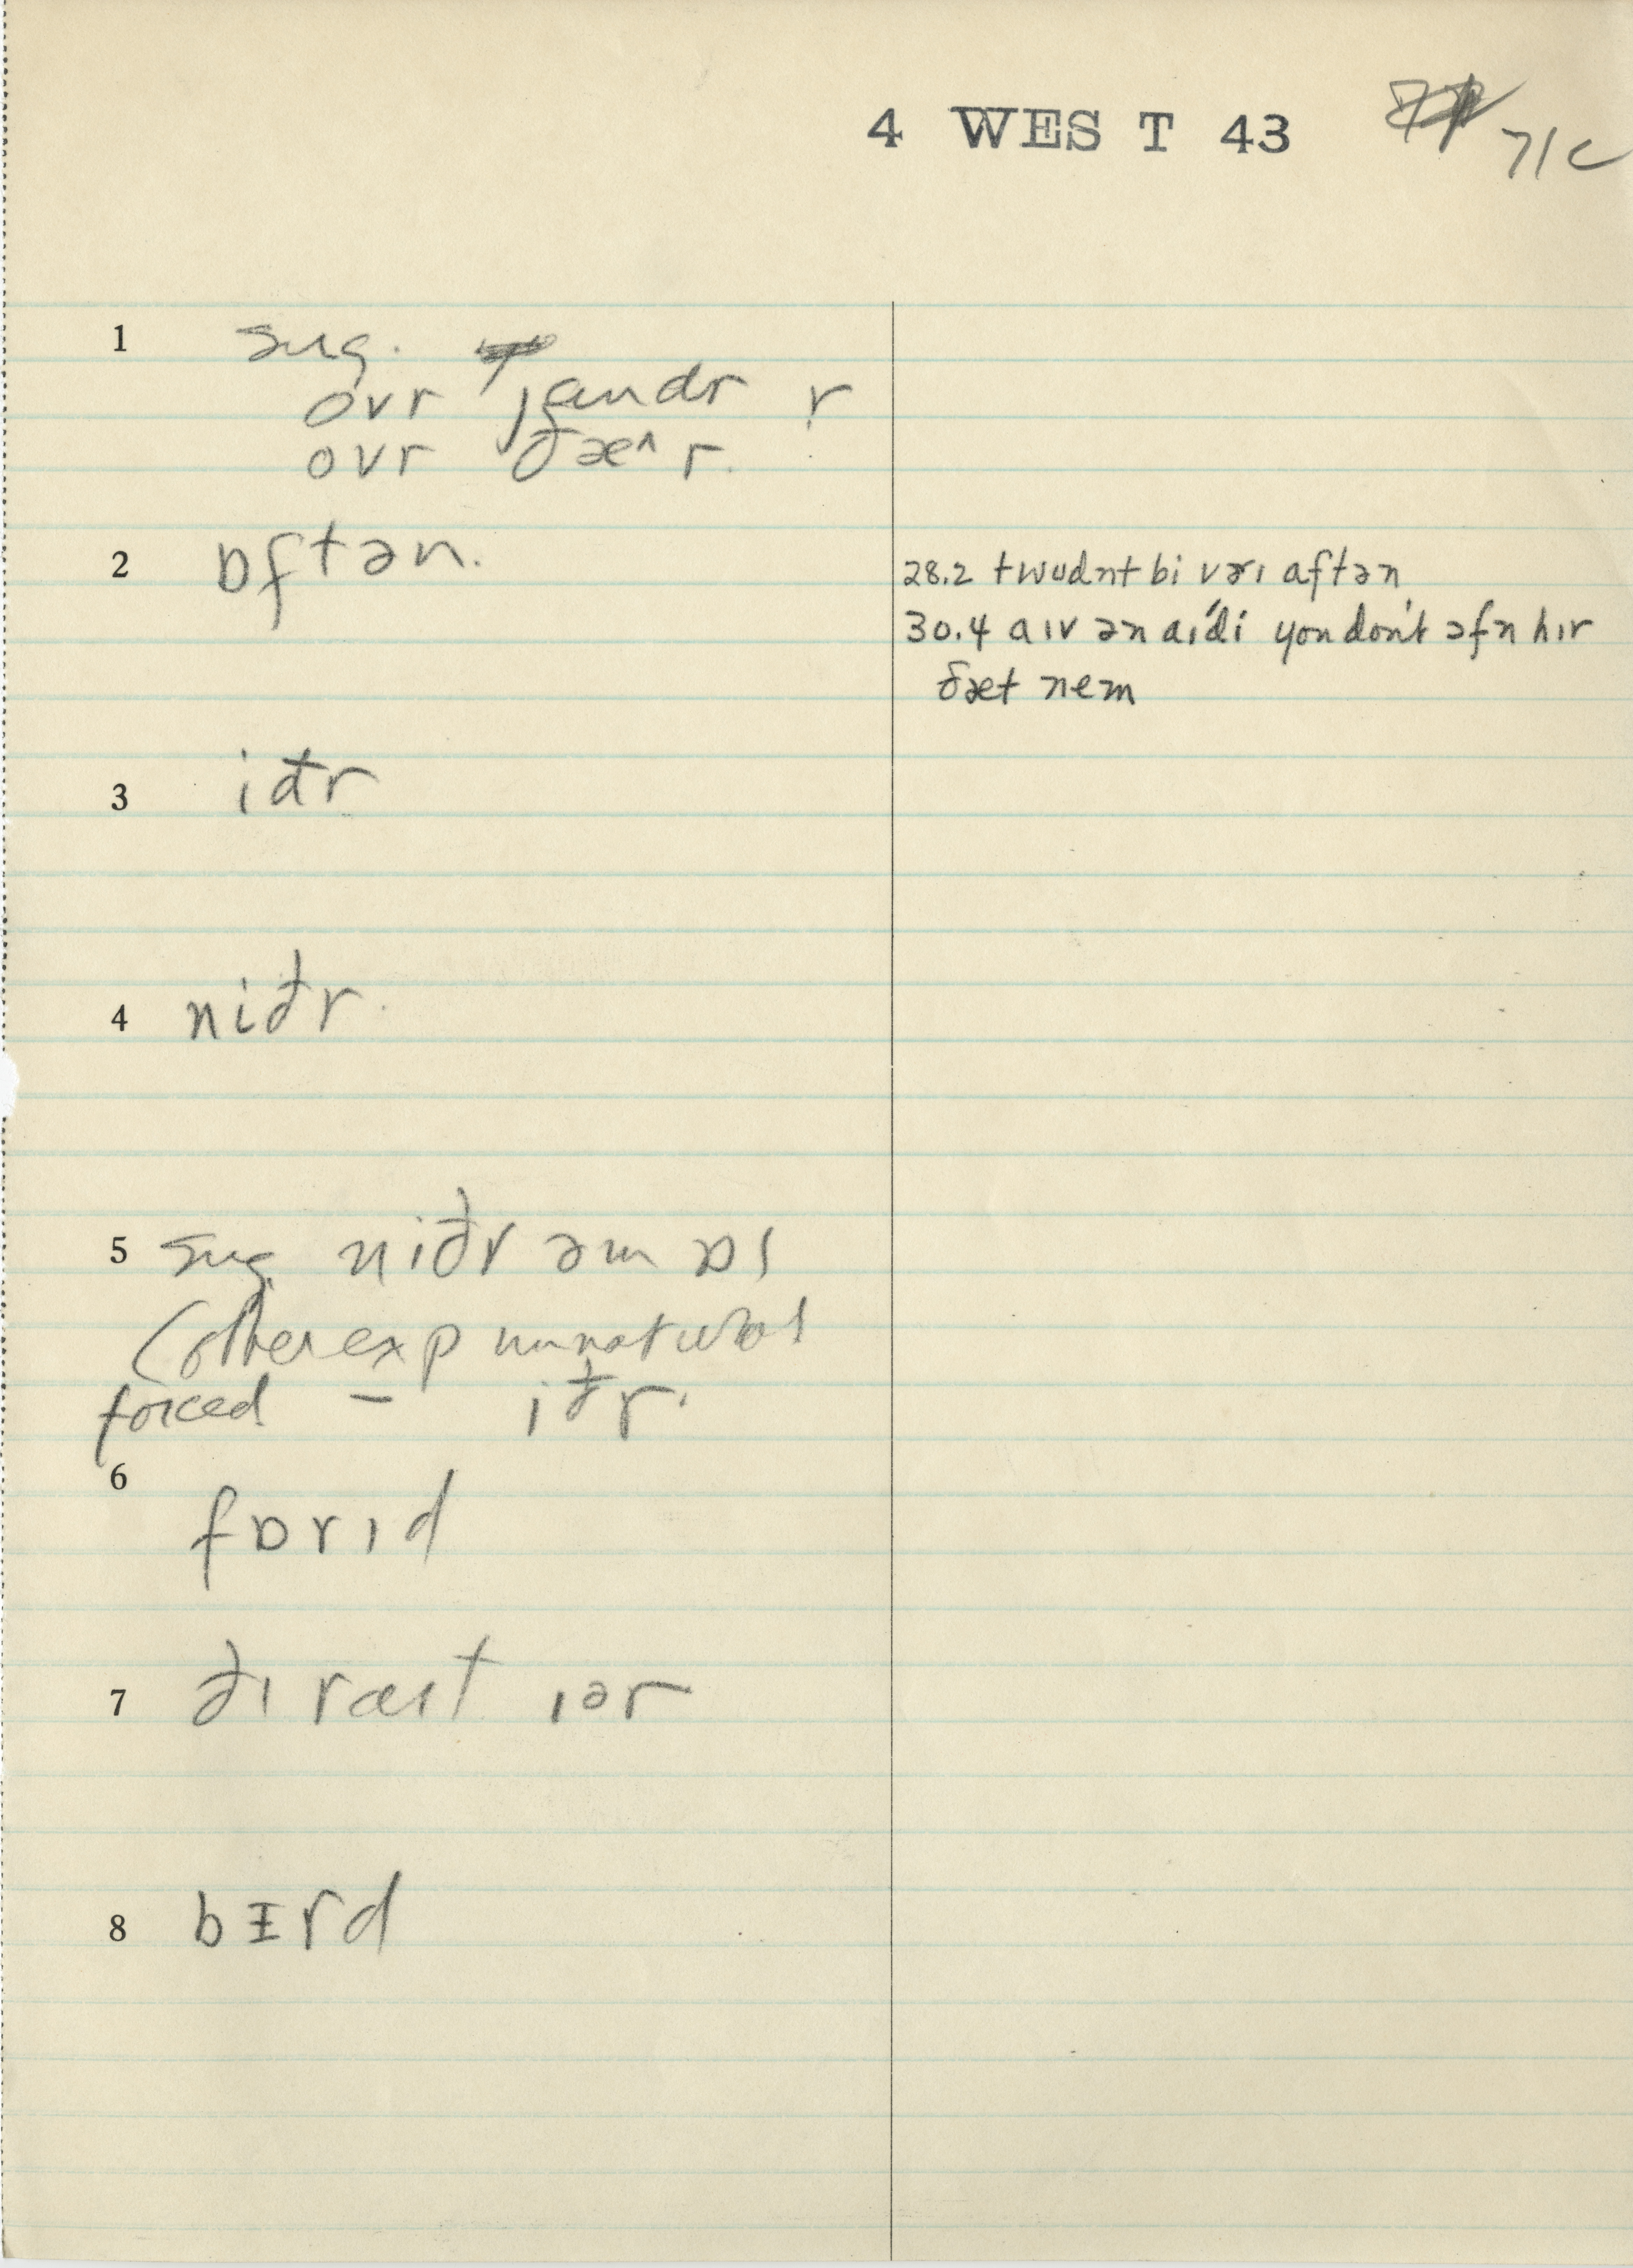 4 WEST 43
71c
1 sug.
ovr jandr r
ovr ðæ^ r.
2 ɒftən.
28.2 twudnt bi vɛrı aftən
30.4 aıv ən aı´di you don't ɔfn hır
ðæt nem
3 iðr
4 niðr
5 sug niðr əm ɒı
(other exp unnatural
forced – iðr.
6 fɒrıd
7 ðı ræıt ıər
8 bɪrd